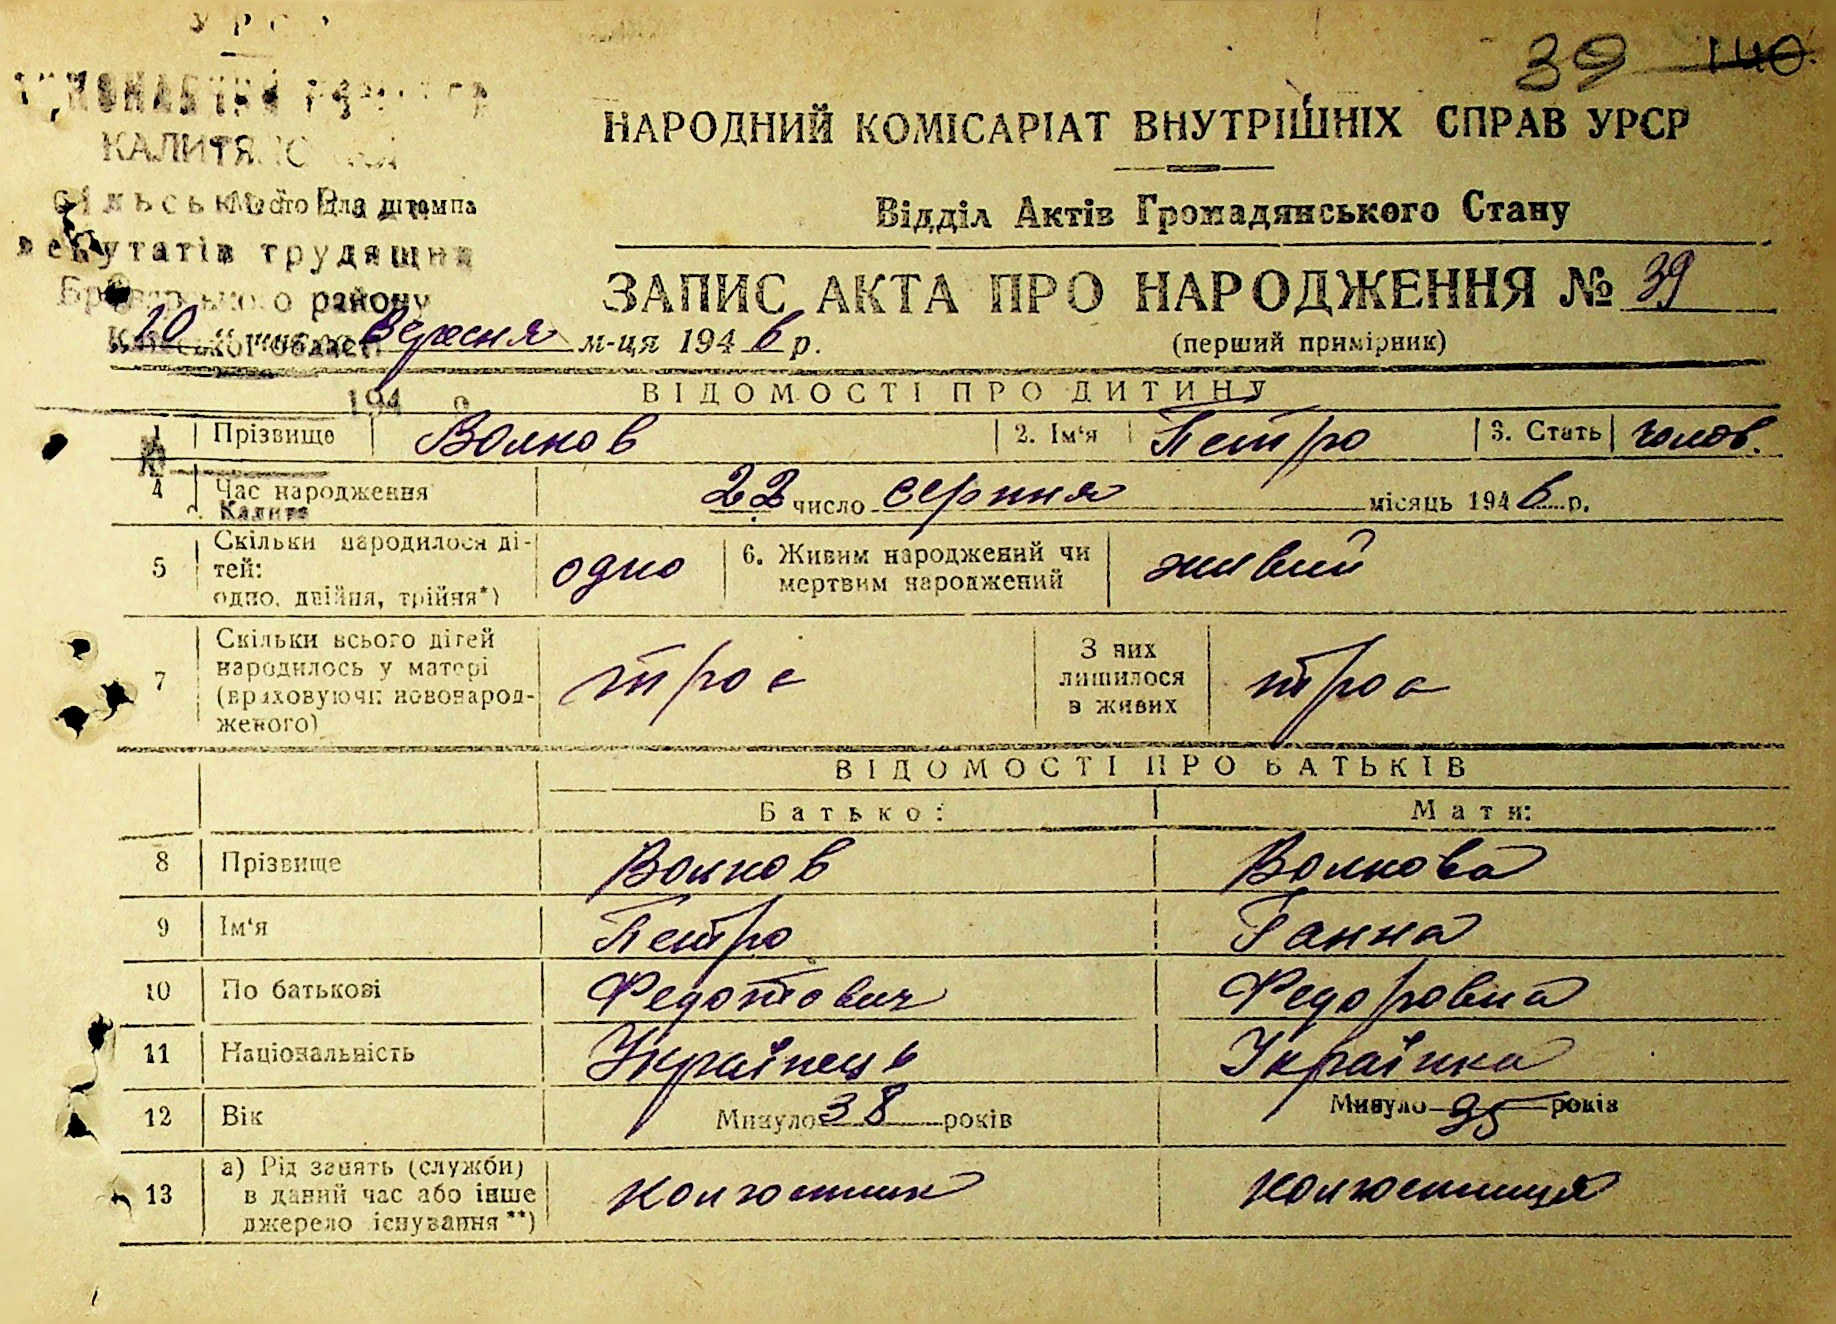 УРСР
39 140
ВИКОНАВЧИЙ КОМІТЕТ
КАЛИТЯНСЬКОЇ
сільської Ради
Місто для штампа
депутатів трудящих
Броварського району
Київської області
194 р.
Калита
НАРОДНИЙ КОМІСАРІАТ ВНУТРІШНІХ СПРАВ УРСР
Відділ Актів Громадянського Стану
ЗАПИС АКТА ПРО НАРОДЖЕННЯ № 39
10 вересня м-ця 1946 р.
(перший примірник)
ВІДОМОСТІ ПРО ДИТИНУ
1 Прізвище Волков 2. Ім‘я Петро 3. Стать чолов.
4 Час народження 22 число серпня місяць 1946 р.
5 Скільки народилося ді-
тей:
одно, двійня, трійня*) одно 6. Живим народжений чи
мертвим народжений живий
7 Скільки всього дітей
народилось у матері
(враховуючи новонарод-
женого) троє З них
лишилося
в живих троє
ВІДОМОСТІ ПРО БАТЬКІВ
Батько: Мати:
8 Прізвище Волков Волкова
9 Ім‘я Петро Ганна
10 По батькові Федотович Федоровна
11 Національність Українець Українка
12 Вік Минуло 38 років Минуло 35 років
13 а) Рід занять (служби)
в даний час або інше
джерело існування**) колгоспник колгоспниця